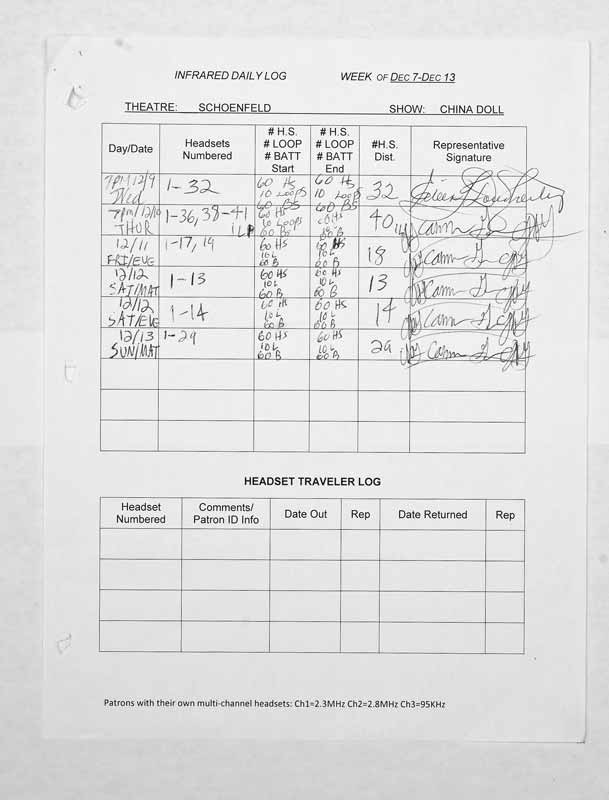 INFRARED DAILY LOG WEEK OF DEC 7-DEC 13
THEATRE: SCHOENFELD SHOW: CHINA DOLL
Day/Date Headsets Numbered # H.S. # LOOP # BATT Start # H.S. # LOOP # BATT End #H.S. Dist. Representative Signature
7PM 12/9 Wed 1-32 60 HS 10 Loops 60 BS 60 HS 10 Loops 60 BS 32
7pm/12/10 THUR 1-36, 38-41 1LP 60 HS 10 Loops 60 B 60 HS 10 L 60 B 40
12/11 FRI/EVE 1-17, 19 60 HS 10 L 60 B 60 HS 10 L 60 B 18
12/12 SAT/MAT 1-13 60 HS 10 L 60 B 60 HS 10 L 60 B 13
12/12 SAT/EVE 1-14 60 HS 10 L 60 B 60 HS 10 L 60 B 14
12/13 SUN/MAT 1-29 60 HS 10 L 60 B 60 HS 10 L 60 B 29
HEADSET TRAVELER LOG
Headset Numbered Comments/ Patron ID Info Date Out Rep Date Returned Rep
Patrons with their own multi-channel headsets: Ch1=2.3MHz Ch2=2.8MHz Ch3=95KHz